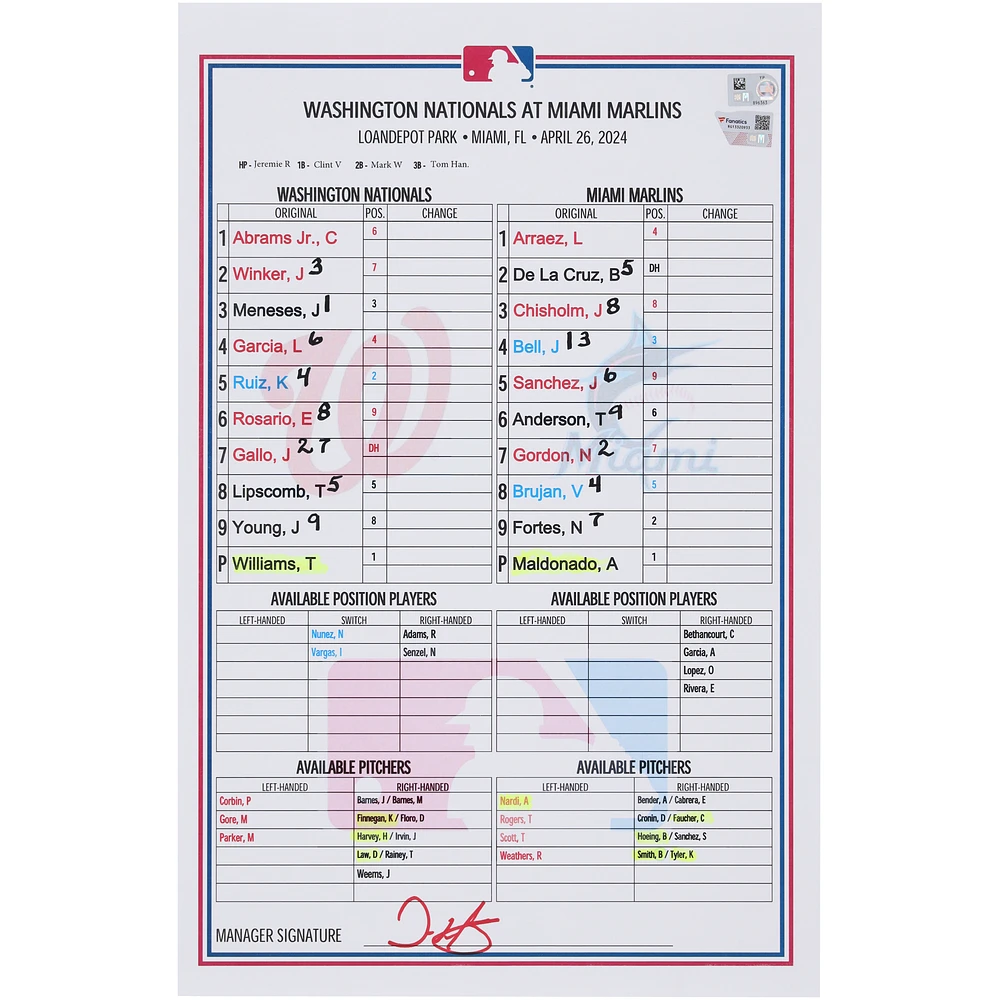 WASHINGTON NATIONALS AT MIAMI MARLINS
LOANDEPOT PARK • MIAMI, FL • APRIL 26, 2024
Fanatics
HP - Jeremie R 1B - Clint V 2B - Mark W 3B - Tom Han.
WASHINGTON NATIONALS
ORIGINAL POS. CHANGE
1 Abrams Jr., C 6
2 Winker, J 3 7
3 Meneses, J 1 3
4 Garcia, L 6 4
5 Ruiz, K 4 2
6 Rosario, E 8 9
7 Gallo, J 27 DH
8 Lipscomb, T 5 5
9 Young, J 9 8
P Williams, T 1
MIAMI MARLINS
ORIGINAL POS. CHANGE
1 Arraez, L 4
2 De La Cruz, B 5 DH
3 Chisholm, J 8 8
4 Bell, J 13 3
5 Sanchez, J 6 9
6 Anderson, T 9 6
7 Gordon, N 2 7
8 Brujan, V 4 5
9 Fortes, N 7 2
P Maldonado, A 1
Miami
AVAILABLE POSITION PLAYERS
LEFT-HANDED SWITCH RIGHT-HANDED
Nunez, N Adams, R
Vargas, I Senzel, N
AVAILABLE POSITION PLAYERS
LEFT-HANDED SWITCH RIGHT-HANDED
Bethancourt, C
Garcia, A
Lopez, O
Rivera, E
AVAILABLE PITCHERS
LEFT-HANDED RIGHT-HANDED
Corbin, P Barnes, J / Barnes, M
Gore, M Finnegan, K / Floro, D
Parker, M Harvey, H / Irvin, J
Law, D / Rainey, T
Weems, J
AVAILABLE PITCHERS
LEFT-HANDED RIGHT-HANDED
Nardi, A Bender, A / Cabrera, E
Rogers, T Cronin, D / Faucher, C
Scott, T Hoeing, B / Sanchez, S
Weathers, R Smith, B / Tyler, K
MANAGER SIGNATURE